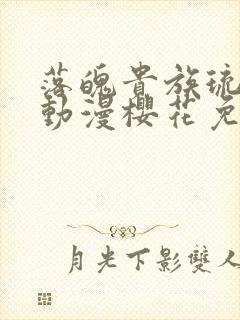 落魄貴族琉
動漫櫻花免
月光下影雙人